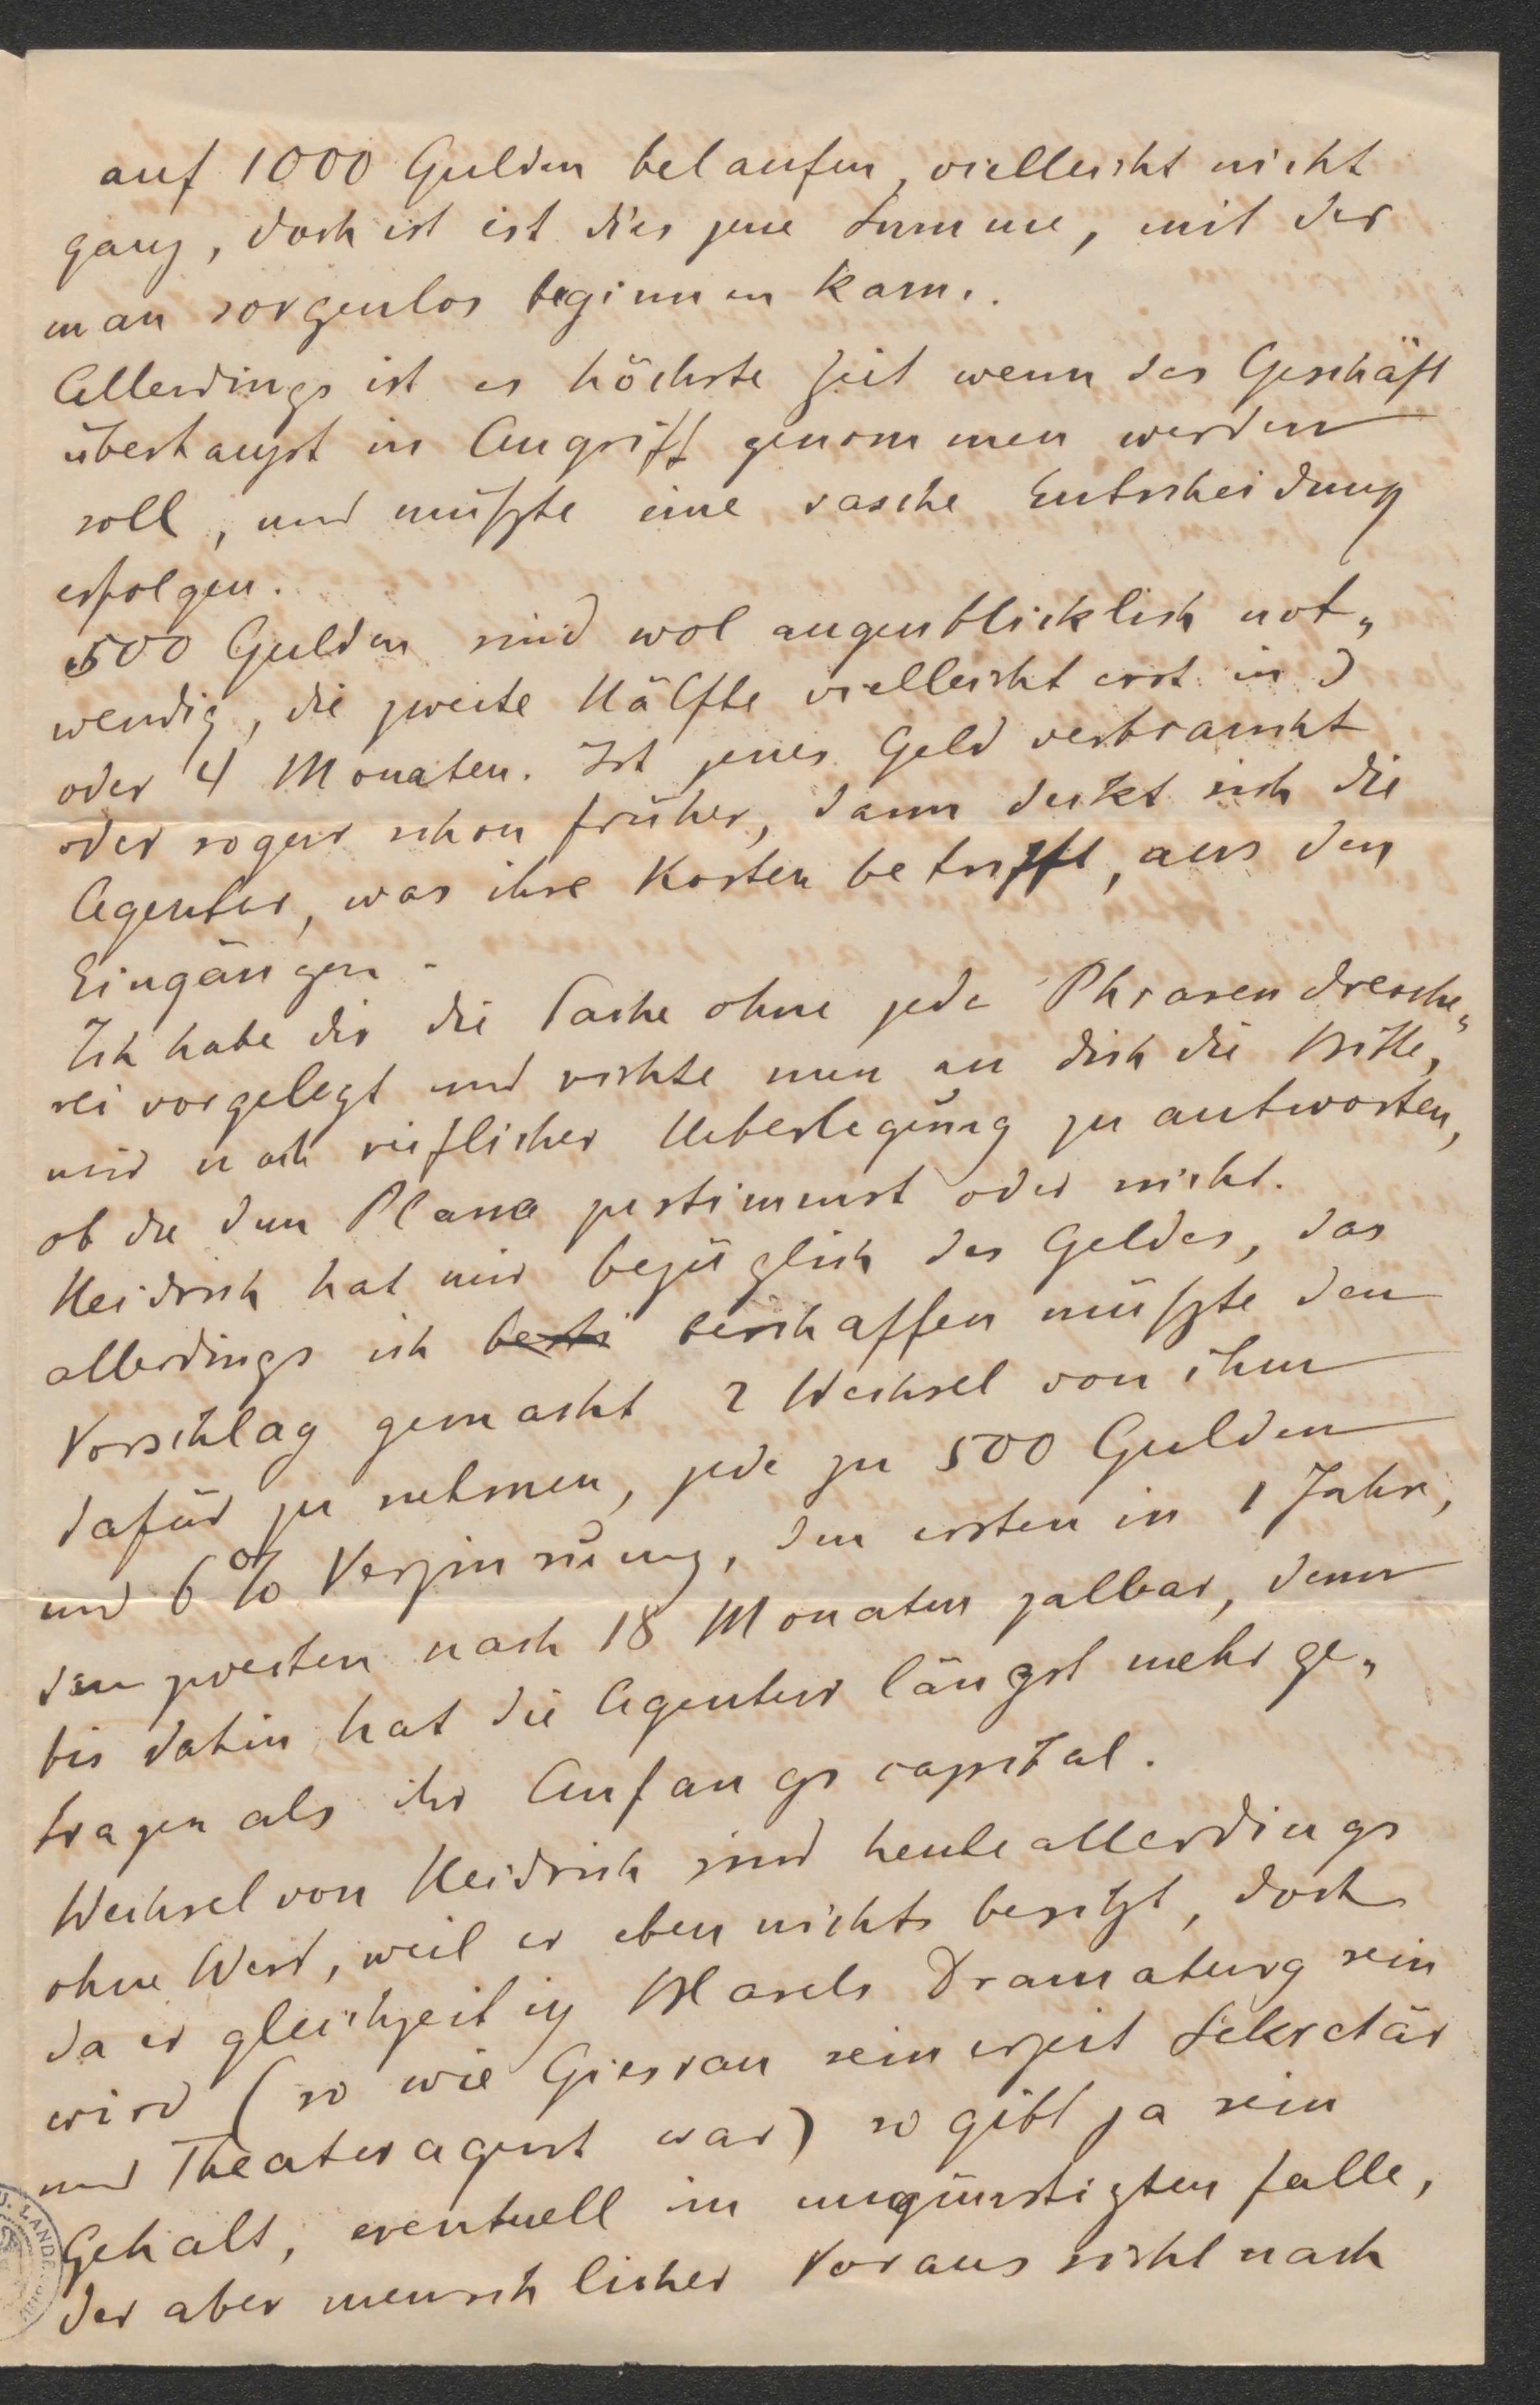 auf 1000 Gulden belaufen, vielleicht nicht
ganz, doch ist ist dies jene Summe, mit der
man sorgenlos beginnen kann.
Allerdings ist es höchste Zeit wenn das Geschäft
überhaupt in Angriff genommen werden
soll, und müßte eine rasche Entscheidung
erfolgen.
500 Gulden sind wol augenblicklich not„
wendig, die zweite Hälfte vielleicht erst in 3
oder 4 Monaten. Ist jenes Geld verbraucht
oder sogar schon früher, dann deckt sich die
Agentur, was ihre Kosten betrifft, aus den
Eingängen.
Ich habe dir die Sache ohne jede Phrasendresche„
rei vorgelegt und richte nun an dich die Bitte,
mir nach reiflicher Ueberlegung zu antworten,
ob du dem Plane zustimmst oder nicht.
Heidrich hat mir bezüglich des Geldes, das
allerdings ich beschaffen müßte den
Vorschlag gemacht 2 Wechsel von ihm
dafür zu nehmen, jede zu 500 Gulden
und 6% Verzinsung, den ersten in 1 Jahr,
den zweiten nach 18 Monaten zalbar, denn
bis dahin hat die Agentur längst mehr ge„
tragen als ihr Anfangscapital.
Wechsel von Heidrich sind heute allerdings
ohne Wert, weil er eben nichts besitzt, doch
da er gleichzeitig Blasels Dramaturg sein
wird (so wie Giesrau seinerzeit Sekretär
und Theateragent war) so gibt ja sein
Gehalt, eventuell im ungünstigten Falle,
der aber menschlicher Voraussicht nach